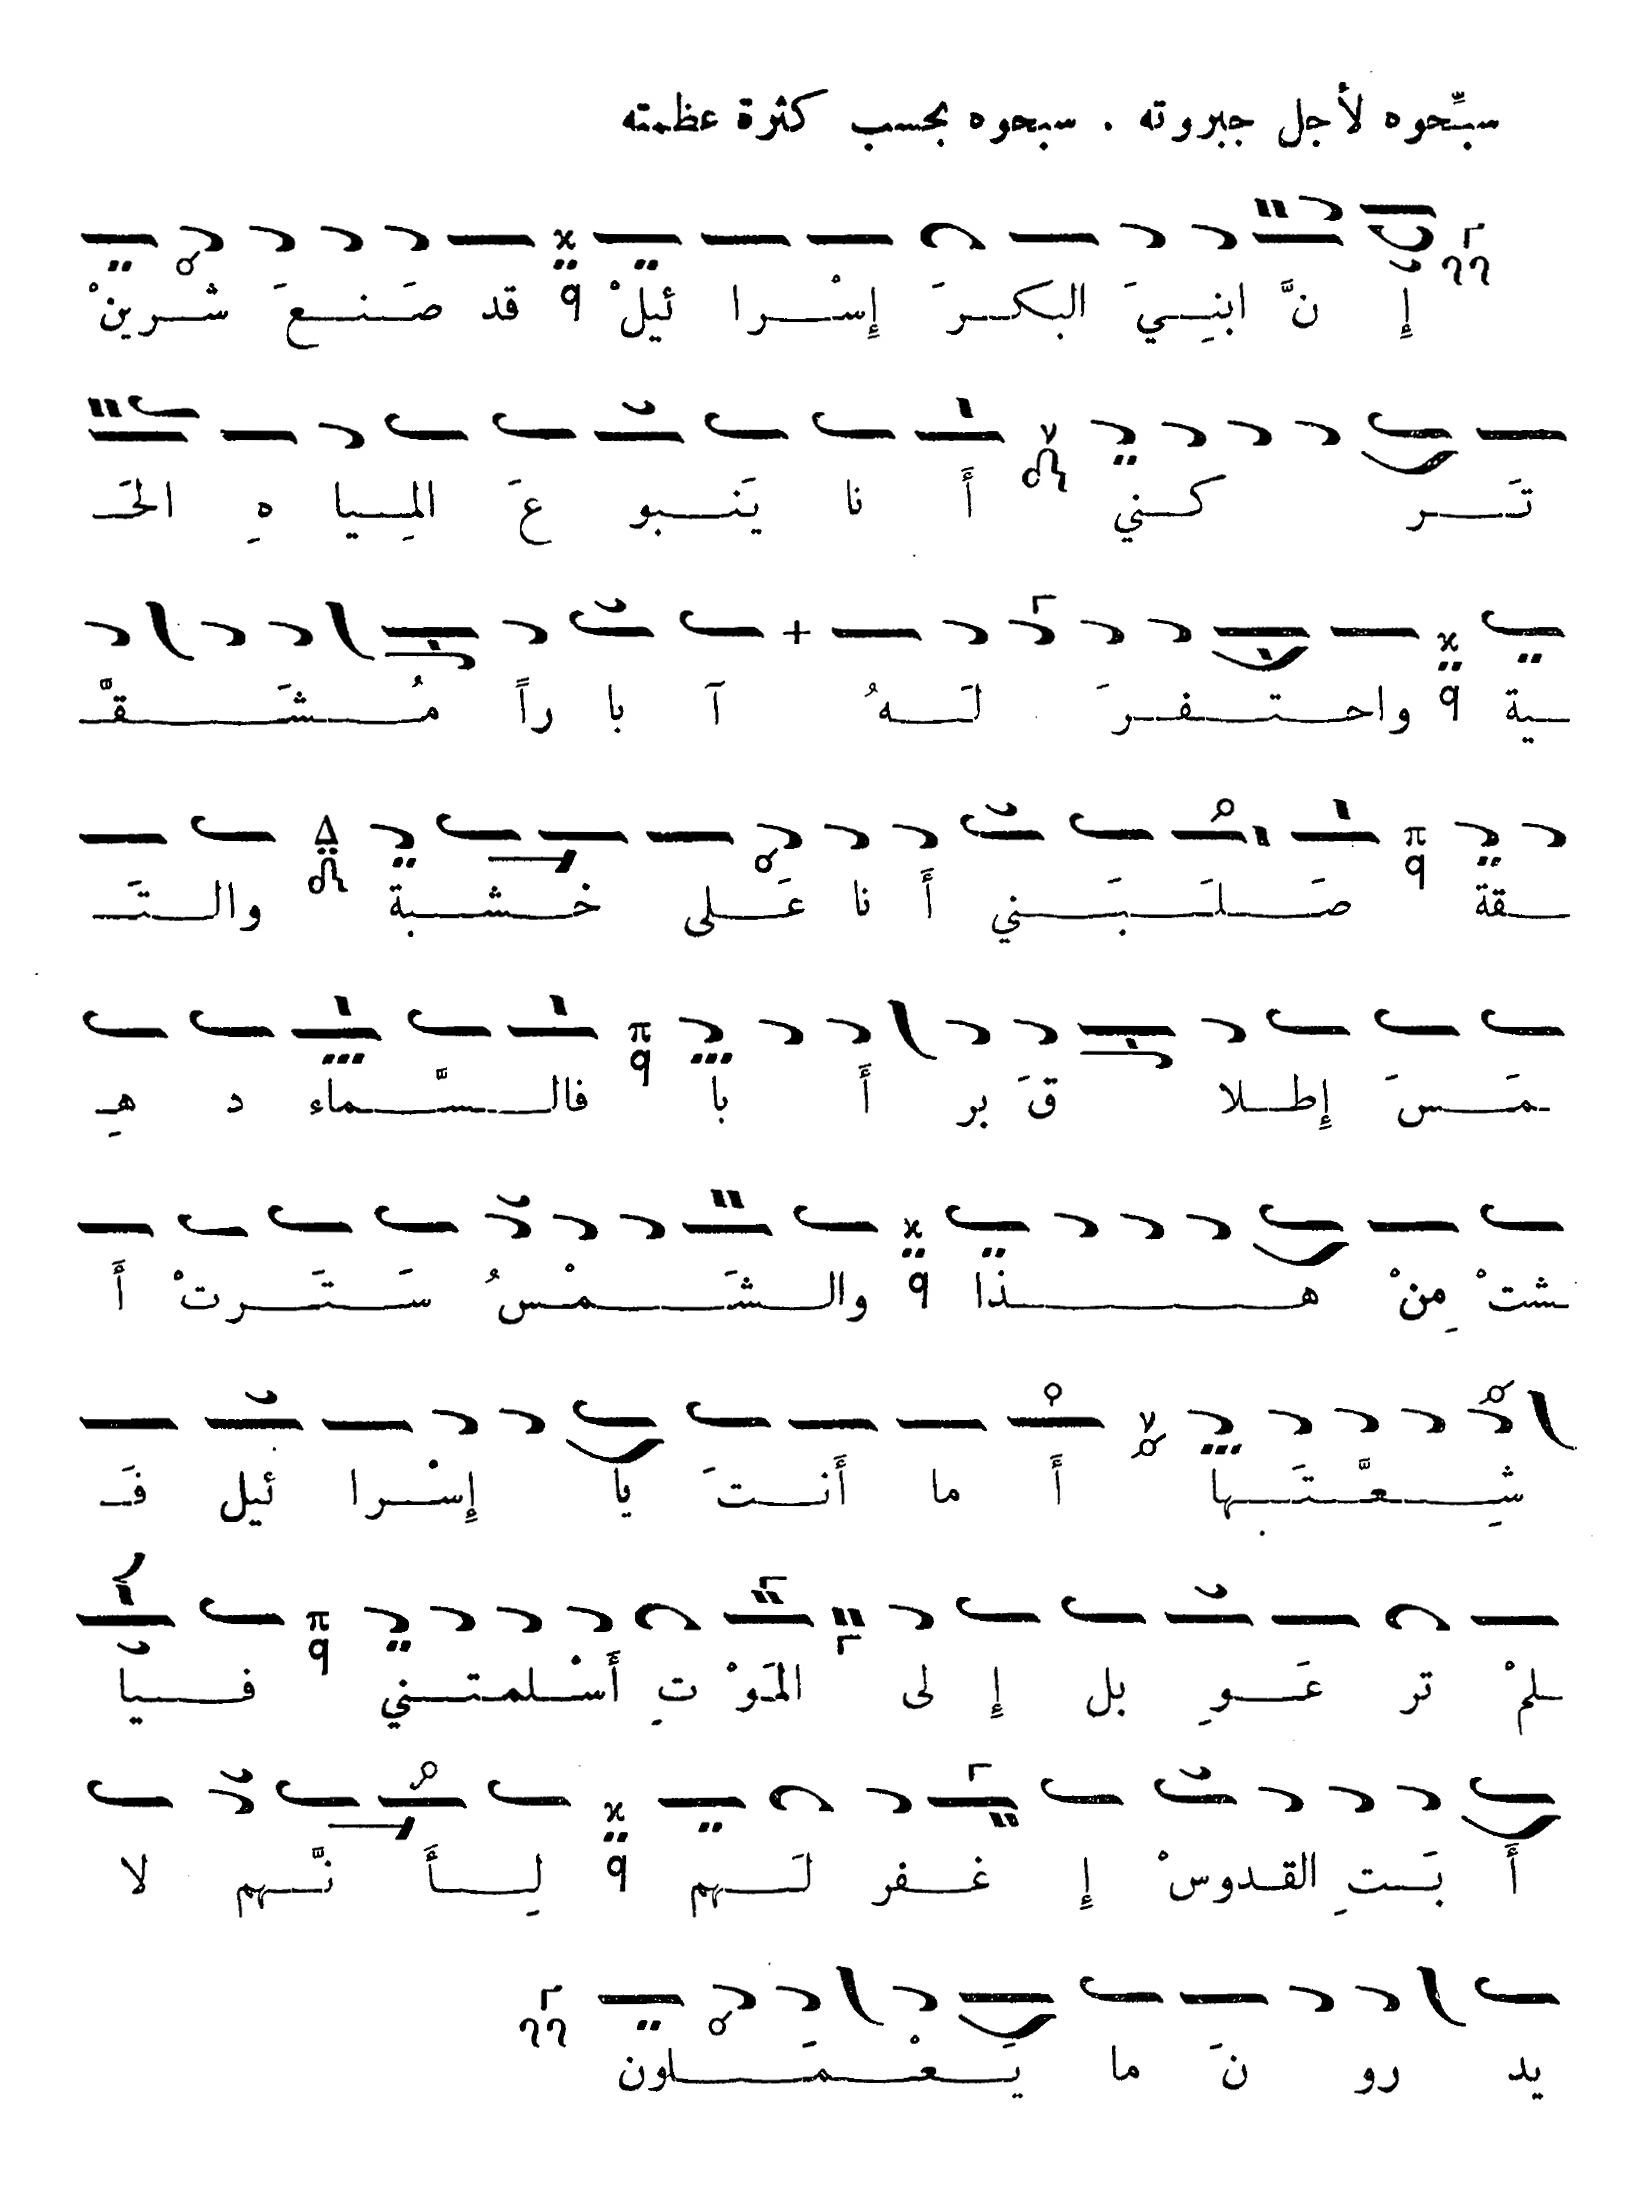 سبِّحوه لأجل جبروته . سبحوه بحسب كثرة عظمته
إِ نَّ ابنِيَ البكرَ إِسْرا ئيلْ قد صَنعَ شرينْ
تَر كني أَ نا يَنبو عَ المِيا هِ الحَـ
ـية واحتفرَ لَهُ آ با راً مُشَقَّـ
ـقة صَلَبَني أَ نا عَلى خشبة والتَـ
ـمَسَ إِطلا قَ بر أَ با فالسَّماء د هِـ
ـشتْ مِنْ هذا والشَمْسُ سَتَرتْ أَ
شِعَّتَها أَ ما أَنتَ يا إِسْرا ئيل فَـ
ـلمْ تر عَوِ بل إِ لى المَوْ تِ أَسْلمتني فيا
أَ بَتِ القدوسْ إِ غفر لَهم لِأَ نَّهم لا
يد رو نَ ما يَعْمَلون